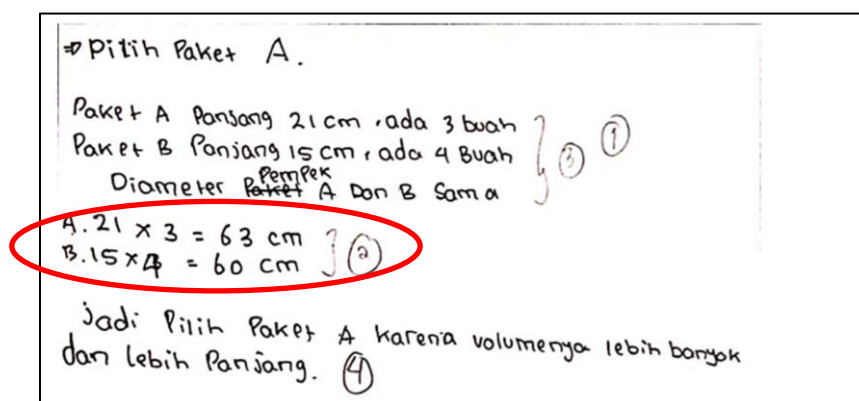 ⇒ Pilih Paket A.
Paket A Panjang 21 cm, ada 3 buah
Paket B Panjang 15 cm, ada 4 Buah } ③ ①
Diameter Pempek A Dan B Sama
A. 21 x 3 = 63 cm
B. 15 x 4 = 60 cm } ②
Jadi Pilih Paket A karena volumenya lebih banyak
dan lebih Panjang. ④